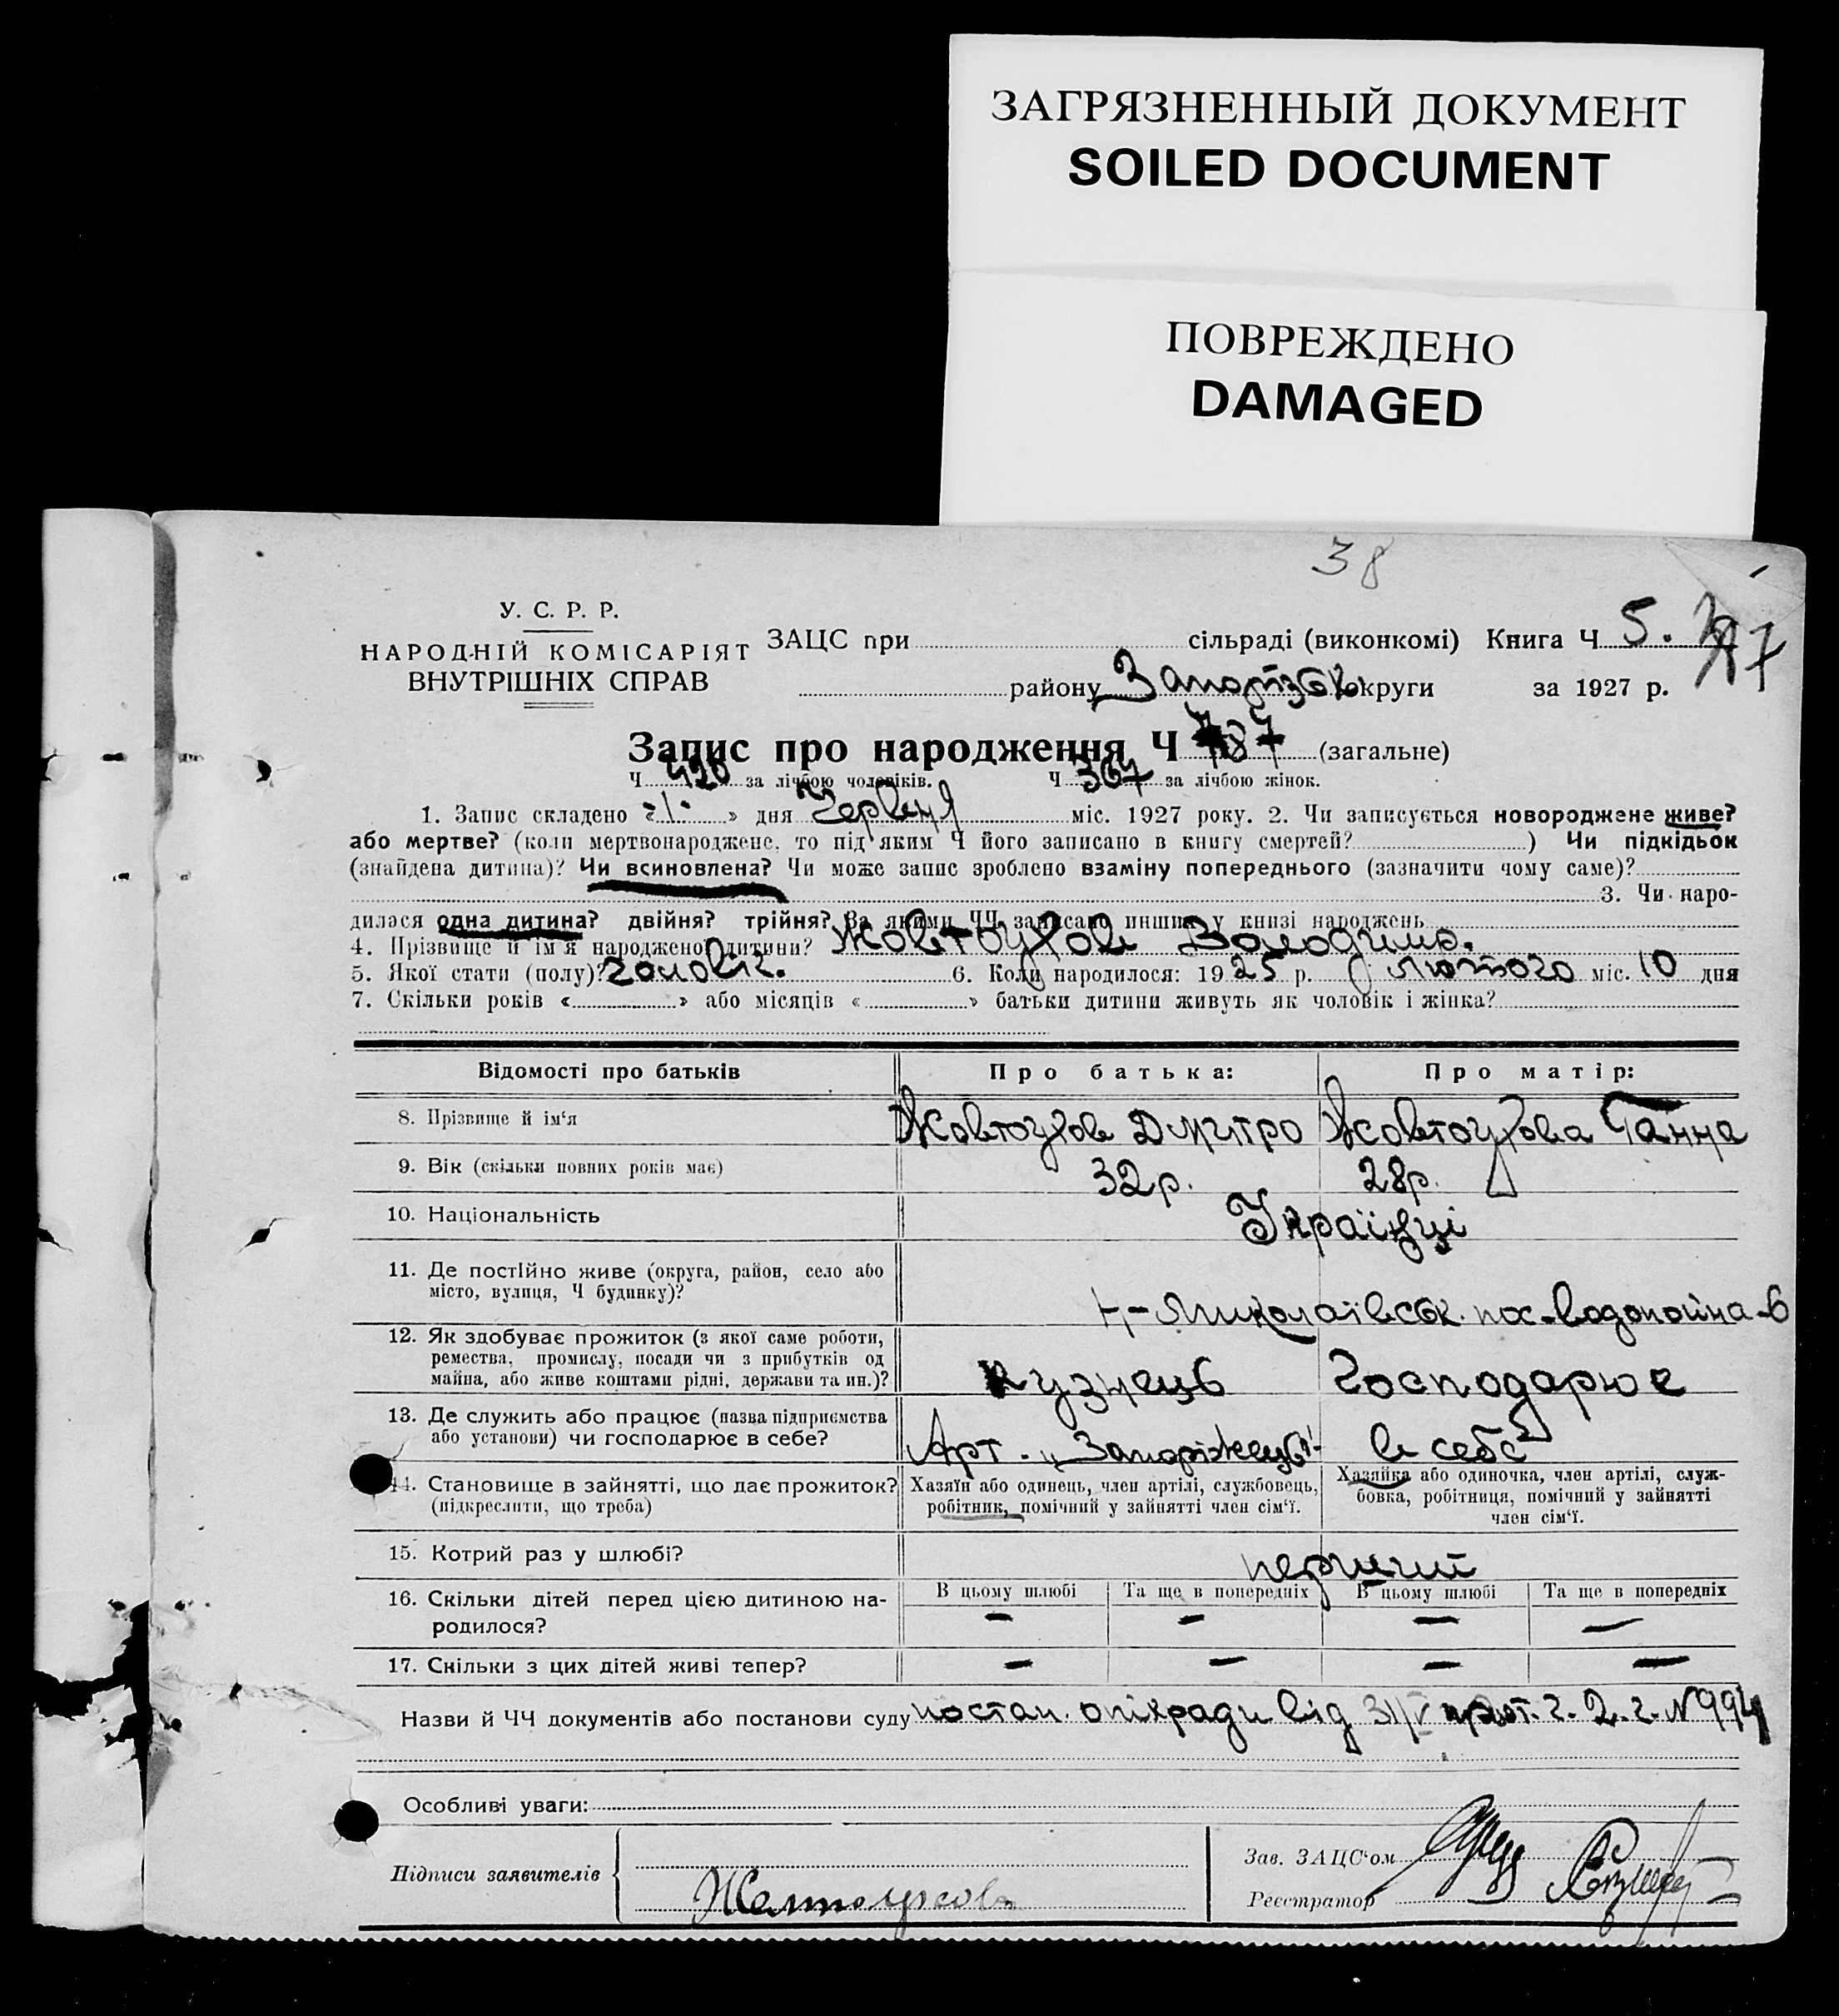 ЗАГРЯЗНЕННЫЙ ДОКУМЕНТ
SOILED DOCUMENT
ПОВРЕЖДЕНО
DAMAGED
38
У. С. Р. Р.
НАРОДНІЙ КОМІСАРІЯТ
ВНУТРІШНІХ СПРАВ
ЗАЦС при сільраді (виконкомі) Книга Ч 5.
району Запорізьк округи за 1927 р.
Запис про народження Ч 787 (загальне)
Ч 420 за лічбою чоловіків. Ч 367 за лічбою жінок.
1. Запис складено «1.» дня Червня міс. 1927 року. 2. Чи записується новороджене живе?
або мертве? (коли мертвонароджене, то під яким Ч його записано в книгу смертей? ) Чи підкідьок
(знайдена дитина)? Чи всиновлена? Чи може запис зроблено взаміну попереднього (зазначити чому саме)?
3. Чи наро-
дилася одна дитина? двійня? трійня? За якими ЧЧ записано инших у книзі народжень
4. Прізвище й ім'я народженої дитини? Жовтоухов Володимир.
5. Якої стати (полу)? чоловіч. 6. Коли народилося: 1925 р. лютого міс. 10 дня
7. Скільки років « » або місяців « » батьки дитини живуть як чоловік і жінка?
Відомості про батьків Про батька: Про матір:
8. Прізвище й ім'я Жовтоухов Дмитро Жовтоухова Ганна
9. Вік (скільки повних років має) 32 р. 28 р.
10. Національність Українці
11. Де постійно живе (округа, район, село або
місто, вулиця, Ч будинку)? Н-Миколаївськ. пос. Водопойна-6
12. Як здобуває прожиток (з якої саме роботи,
ремества, промислу, посади чи з прибутків од
майна, або живе коштами рідні, держави та ин.)? Кузнець Господарює
13. Де служить або працює (назва підприємства
або установи) чи господарює в себе? Арт. „Запоріжець" в себе
14. Становище в зайнятті, що дає прожиток? Хазяїн або одинець, член артілі, службовець, Хазяйка або одиночка, член артілі, служ-
(підкреслити, що треба) робітник, помічний у зайнятті член сім'ї. бовка, робітниця, помічний у зайнятті
член сім'ї.
15. Котрий раз у шлюбі? перший
16. Скільки дітей перед цією дитиною на- В цьому шлюбі Та ще в попередніх В цьому шлюбі Та ще в попередніх
родилося? — — — —
17. Скільки з цих дітей живі тепер? — — — —
Назви й ЧЧ документів або постанови суду постан. опікради від 31/V прот. ч. 2. г. №994
Особливі уваги:
Підписи заявителів Зав. ЗАЦС'ом
Желтоухов Реєстратор